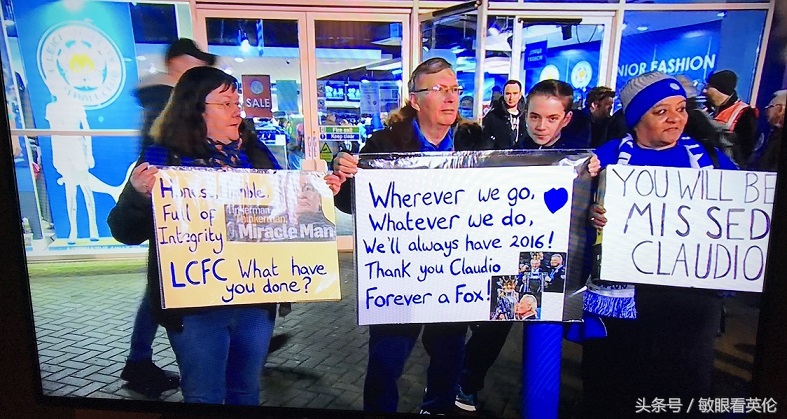 SALE
Fire exit
Keep clear
NIOR FASHION
Full of
Integrity
Tinkerman
Thinkerman
Miracle Man
LCFC What have
you done?
Wherever we go,
Whatever we do,
We'll always have 2016!
Thank you Claudio
Forever a Fox!
YOU WILL BE
MISSED
CLAUDIO
头条号 / 敏眼看英伦